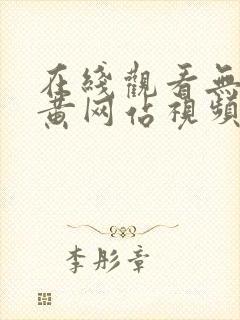 在綫觀看無
黄网佔視頻
李彤章